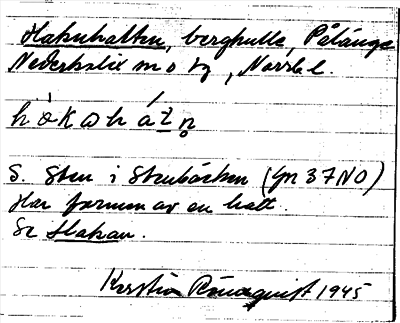 Hakuhatten, berghulle, Pålänge
Nederkalix sn o tg, Norrb l.
S. Sten i Stenbäcken (Gn 37NO)
Har formen av en hatt.
Se Hakan.
Kerstin Rönnquist 1945